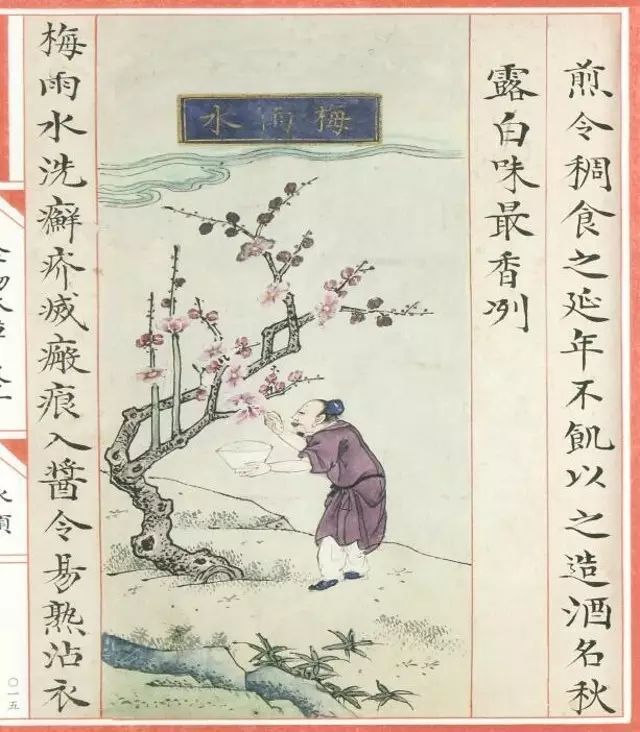 煎令稠食之延年不飢以之造酒名秋
露白味最香冽
梅雨水
梅雨水洗癬疥滅瘢痕入醬令易熟沾衣
〇一五